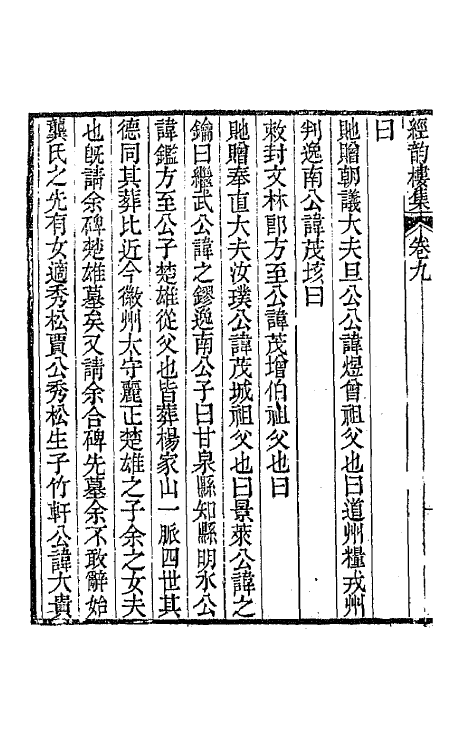 經韵樓集 卷九
曰
貤贈朝議大夫旦公公諱煜曾祖父也曰道州糧戎州
判逸南公諱茂垓曰
敕封文林郎方至公諱茂增伯祖父也曰
貤贈奉直大夫汝璞公諱茂城祖父也曰景萊公諱之
鑰曰繼武公諱之鏐逸南公子曰甘泉縣知縣明水公
諱鑑方至公子楚雄從父也皆葬楊家山一脈四世其
德同其葬比近今徽州太守麗正楚雄之子余之女夫
也旣請余碑楚雄墓矣又請余合碑先墓余不敢辭始
龔氏之先有女適秀松賈公秀松生子竹軒公諱大貴